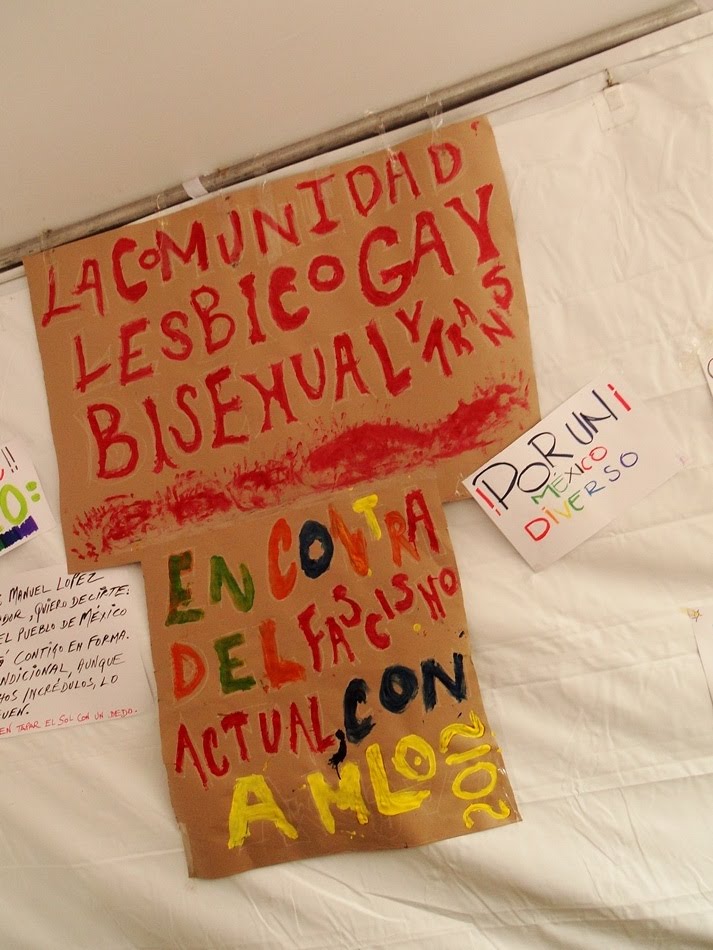 LA COMUNIDAD
LESBICO GAY
BISEXUAL Y TRANS
EN CONTRA
DEL FASCISMO
ACTUAL, CON
AMLO
¡POR UN!
MÉXICO
DIVERSO
!!
O=
MANUEL LOPEZ
ADOR, QUIERO DECIRTE:
EL PUEBLO DE MÉXICO
CONTIGO EN FORMA
NDICIONAL, AUNQUE
HOS INCRÉDULOS, LO
UEN.
EN TAPAR EL SOL CON UN DEDO.